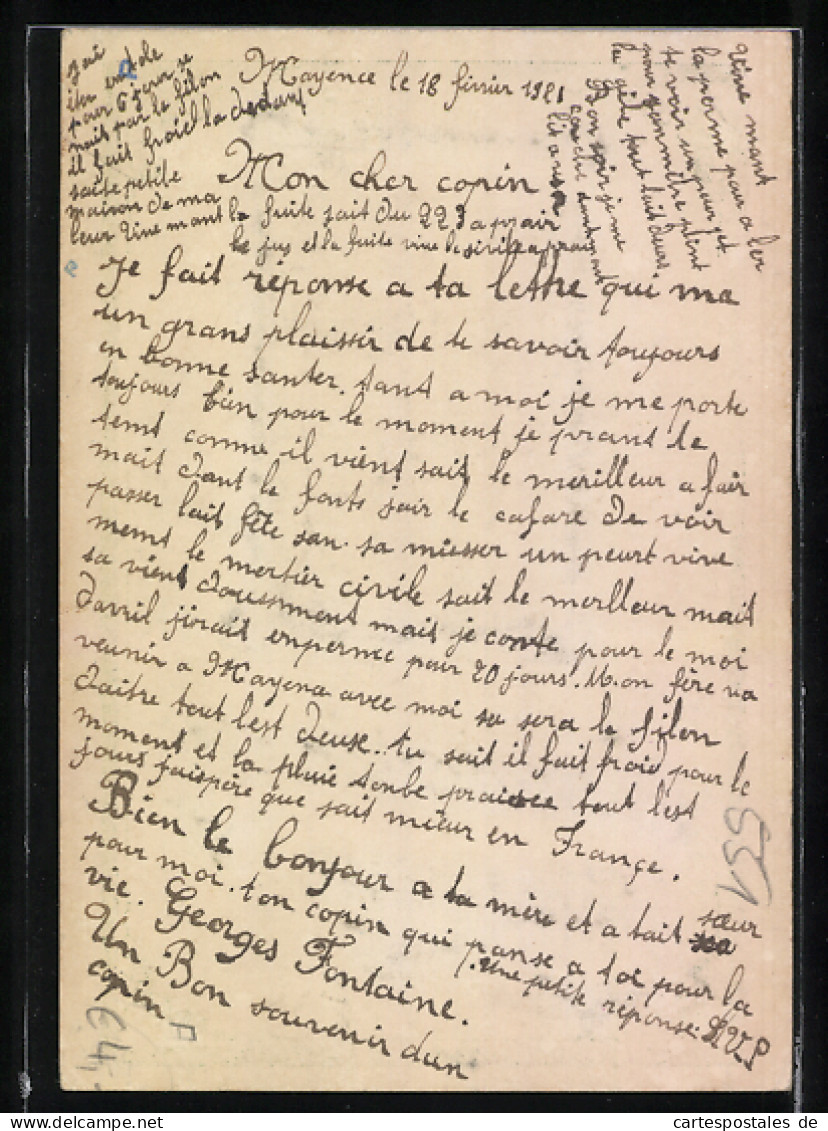 Mayence le 18 février 1921
Mon cher copin
la fuite sait du 223 aprair
le jus et la fuite vive le sivile aprau
Je fait réponse a ta lettre qui ma
un grans plaissir de te savoir toujours
en bonne santer. tant a moi je me porte
toujours bien pour le moment je prant le
temt comme il vient sait le merilleur a fair
mait dant le fonts sair le cafare de voir
passer lait fête san sa miesser un peurt vive
ment le mertier civile sait le merlleur mait
sa vient doussment mait je conte pour le moi
davril jirait enpermee pour 20 jours. Mon fère va
veunir a Mayena avec moi se sera le filon
daitre tout lest deuse. tu sait il fait froid pour le
moment et la pluie tonbe praisce tout lest
jours jaispère que sait mieur en France.
Bien le bonjour a ta mère et a tait sœur
pour moi. ton copin qui panse a toi pour la
vie. Georges Fontaine.
une petite réponse. S.V.P
Un Bon souvenir dun
copin
jai
pour 6 jour je
par le filon
il fait froid la dedans
saite petite
maison de ma
leur Vive mant
Vive mant
la perme pour a ler
te voir un peur jet
le gite tout lait deurs
Bon soir je me
couche
551
€4,-
cartespostales de